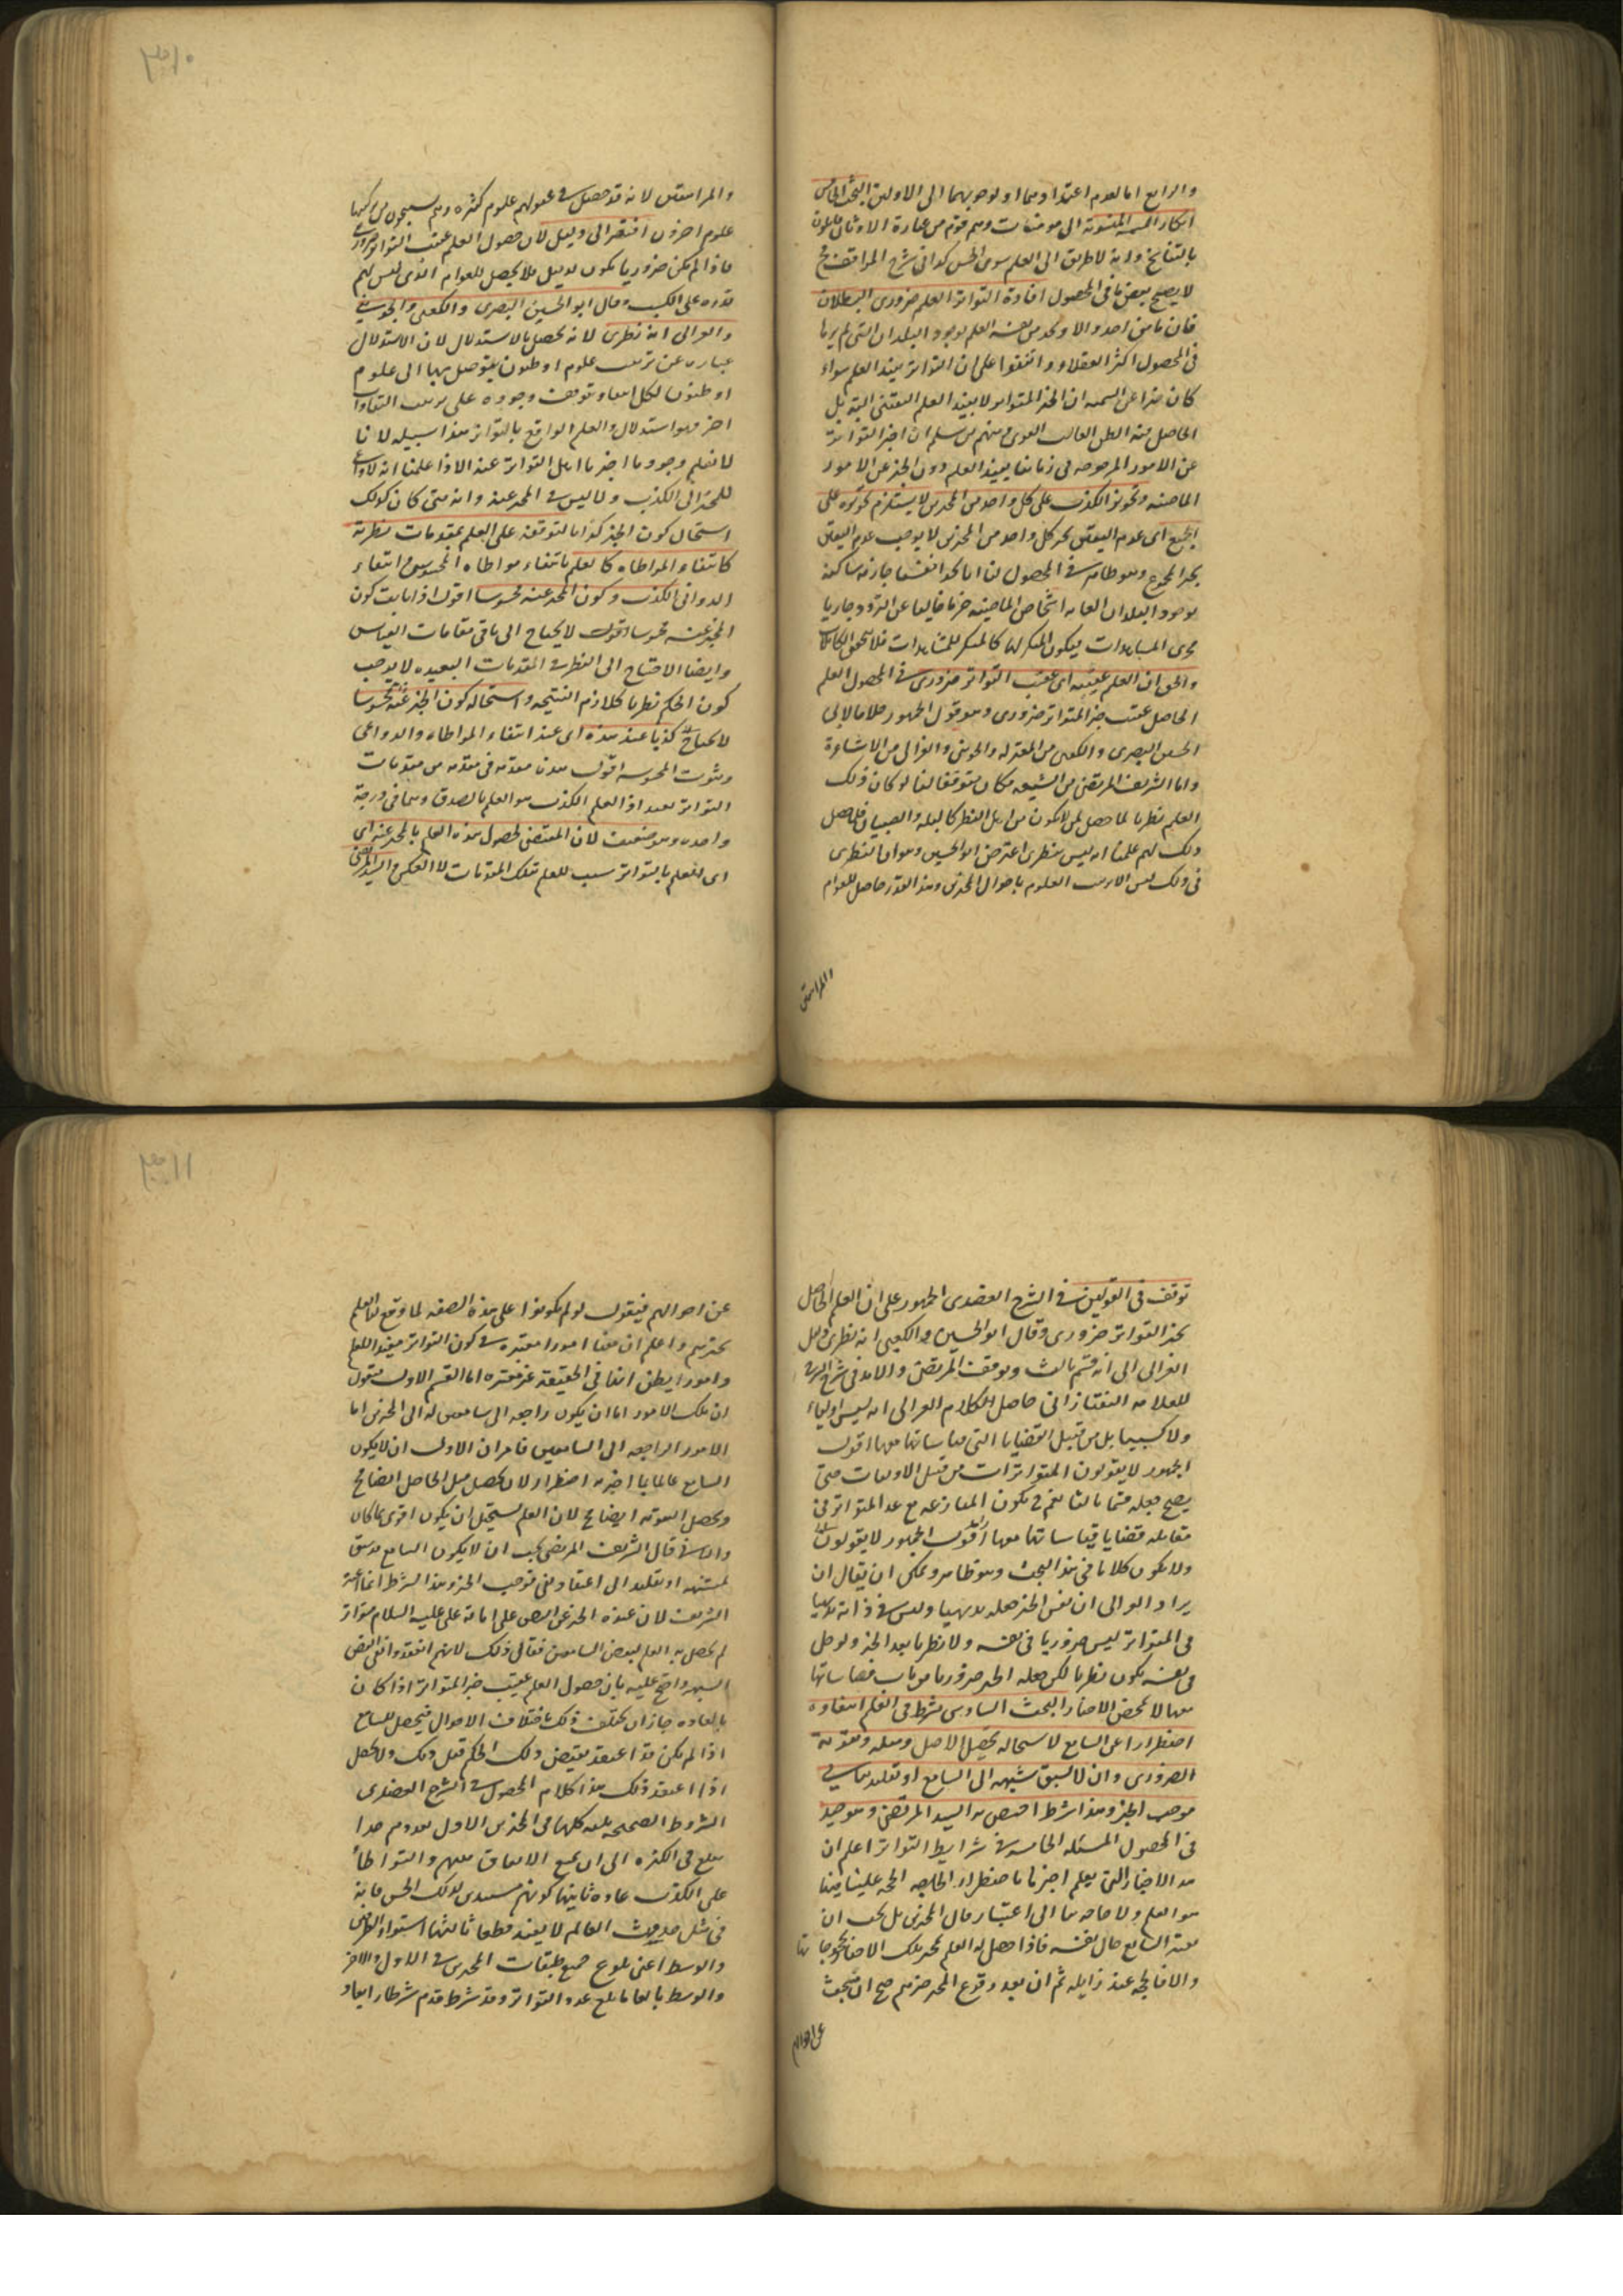 والرابع اما لعدم اعتدادهما او لوجوبهما الى الاولين البحث الخامس
انكار السمنية المنسوبة الى سومنات وهم قوم من عبدة الاوثان قائلون
بالتناسخ وانه لا طريق الى العلم سوى الحس كذا في شرح المواقف
لا يصح بعض ما في المحصول افادة التواتر العلم ضروري البطلان
فان ما من احد الا ويجد من نفسه العلم بوجود البلدان التي لم يرها
في المحصول اكثر العقلاء واتفقوا على ان التواتر يفيد العلم سواء
كان خبرا عن السمنية ان الخبر المتواتر لا يفيد العلم اليقيني البتة بل
الحاصل منه الظن الغالب القوى ومنهم من سلم ان اخبر التواتر
عن الامور الموجودة في زماننا يفيد العلم دون الخبر عن الامور
الماضية وتجويز الكذب على كل واحد من المخبرين لا يستلزم تجويزه على
الجميع اى عدم اليقين بخبر كل واحد من المخبرين لا يوجب عدم اليقين
بخبر المجموع وهو ظاهر في المحصول لنا انا نجد انفسنا جازمة ساكنة
بوجود البلدان الغائبة واشخاص الماضية جزما خاليا عن التردد جاريا
مجرى المشاهدات فيكون المنكر لها كالمنكر للمشاهدات فلا يستحق المكالمة
والحق ان العلم عقيبه اى عقيب التواتر ضروري في المحصول العلم
الحاصل عقيب خبر المتواتر ضروري وهو قول الجمهور خلافا لابى
الحسين البصرى والكعبى من المعتزلة والجوينى والغزالى من الاشاعرة
واما الشريف المرتضى من الشيعة فكان متوقفا لنا لو كان ذلك
العلم نظريا لما حصل لمن لا يكون من اهل النظر كالبله والصبيان فلما حصل
ذلك لهم علمنا انه ليس بنظرى اعترض ابو الحسين وهو ان النظرى
في ذلك ليس الا ترتيب العلوم باحوال المخبرين وهذا القدر حاصل للعوام
والمراهقين
٣١٠
والمراهقين لانه قد حصل في عقولهم علوم كثيرة وهم يستنتجون من تركيبها
علوم اخرون افتقر الى دليل لان حصول العلم عقيب التواتر ضرورى
فاذا لم يكن ضروريا يكون بدليل فلا يحصل للعوام الذى ليس لهم
قدرة على الكسب وقال ابو الحسين البصرى والكعبى والجوينى
والغزالى انه نظرى لانه يحصل بالاستدلال لان الاستدلال
عبارة عن ترتيب علوم او ظنون يتوصل بها الى علوم
او ظنون لكل اعتقاد توقف وجوده على ترتيب اعتقادات
اخر فهو استدلال والعلم الواقع بالتواتر هذا سبيله لانا
لا نعلم وجود ما اخبرنا اهل التواتر عنه الا اذا علمنا انه لا داعى
للمخبر الى الكذب ولا لبس في المخبر عنه وانه متى كان كذلك
استحال كون الخبر كذبا لتوقفه على العلم بمقدمات نظرية
كانتفاء المواطاة كالعلم بانتفاء مواطاة المحسوس وانتفاء
الدواعى الكذب وكون المخبر عنه محسوسا اقول اذا ثبت كون
المخبر عنه محسوسا اقول لا يحتاج الى باقى مقدمات القياس
وايضا الاحتياج الى النظر في المقدمات البعيدة لا يوجب
كون الحكم نظريا كلازم النتيجة واستحالة كون الخبر عنه محسوسا
لا يحتاج كذبا عند هذه اى عند انتفاء المواطاة والدواعى
وثبوت المحسوسة اقول هذه مقدمة في مقدمة من مقدمات
التواتر بعيد اذ العلم الكذب هو العلم بالصدق وهما في درجة
واحدة وهو ضعيف لان المقتضى لحصول هذه العلم بالمخبر عنه اى
اى العلم بالتواتر سبب للعلم بتلك المقدمات لا العكس والسيد المرتضى
توقف في القولين في الشرح العضدى الجمهور على ان العلم الحاصل
بخبر التواتر ضرورى وقال ابو الحسين والكعبى انه نظرى ومال
الغزالى الى انه قسم ثالث وتوقف المرتضى والآمدى في شرح الشرح
للعلامة التفتازانى حاصل الكلام الغزالى انه ليس اوليا
ولا كسبيا بل من قبيل القضايا التى قياساتها معها اقول
الجمهور لا يقولون المتواترات من قبيل الاوليات حتى
يصح جعله قسما ثالثا نعم يكون المنازعة مع عد المتواتر في
مقابلة قضايا قياساتها معها اقول الجمهور لا يقولون
ولا يكون كلامنا في هذا البحث وهو ظاهر ويمكن ان يقال ان
يراد الغزالى ان نفس الخبر جعله بديهيا وليس في ذاته بديهيا
فى المتواتر ليس ضروريا في نفسه ولا نظريا بعد الخبر ولو حصل
في نفسه يكون نظريا لكن جعله الخبر ضروريا من باب قياساتها
معها لا محض الاخبار البحث السادس يشترط في العلم انتفاؤه
اضطرارا عن السامع لاستحالة تحصيل الاصل ومثله وتقوية
الضرورى وان لا يسبق شبهة الى السامع او تقليد ينافى
موجب الخبر وهذا شرط اختص به السيد المرتضى وهو جيد
في المحصول المسئلة الخامسة في شرايط التواتر اعلم ان
هذه الاخبار التى يعلم اخبرنا باضطرار الحاصلة الحجة علينا فيها
هو العلم ولا حاجة بنا الى اعتبار حال المخبرين بل يجب ان
يعتبر السامع حال نفسه فاذا حصل له العلم بخبر تلك الاخبار محجوجا بها
والا فالحجة عنه زايلة ثم ان بعد وقوع العلم بخبرهم صح ان نبحث
عن احوالهم
٣١١
عن احوالهم فيقول لو لم يكونوا على هذه الصفة لما وقع لنا العلم
بخبرهم واعلم ان هنا امورا معتبرة في كون التواتر مفيدا للعلم
وامورا يظن انها في الحقيقة غير معتبرة اما القسم الاول فنقول
ان تلك الامور اما ان يكون راجعة الى السامعين او الى المخبرين اما
الامور الراجعة الى السامعين فامران الاول ان لا يكون
السامع عالما بما اخبر به اضطرارا لان تحصيل الحاصل ايضا مح
وتحصل التقوية ايضا مح لان العلم يستحيل ان يكون اقوى مما كان
والثانى قال الشريف المرتضى يجب ان لا يكون السامع قد سبق
لشبهة او تقليد الى اعتقاد نفى موجب الخبر وهذا الشرط انما اعتبره
الشريف لان عنده الخبر عن النص على امامة على عليه السلام متواتر
لم يحصل به العلم لبعض السامعين فقال ذلك لانهم اعتقدوا نفى النص
لشبهة واحتج عليه بان حصول العلم عقيب خبر المتواتر اذا كان
بالعادة جاز ان يختلف ذلك باختلاف الاحوال فيحصل للسامع
اذا لم يكن قد اعتقد نقيض ذلك الحكم قبل ذلك ولا يحصل
اذا اعتقد ذلك هذا كلام المحصول في الشرح العضدى
الشروط الصحيحة ثلثة كلها في المخبرين الاول تعددهم تعددا
يبلغ في الكثرة الى ان يمتنع الاتفاق بينهم والتواطأ
على الكذب عادة ثانيها كونهم مستندين لذلك الى الحس فانه
في مثل حدوث العالم لا يفيد قطعا ثالثها استواء الطرفين
والوسط اعنى بلوغ جميع طبقات المخبرين في الاول والآخر
والوسط بالغا ما بلغ عدد التواتر وقد شرط قدم شرطا رابعا و